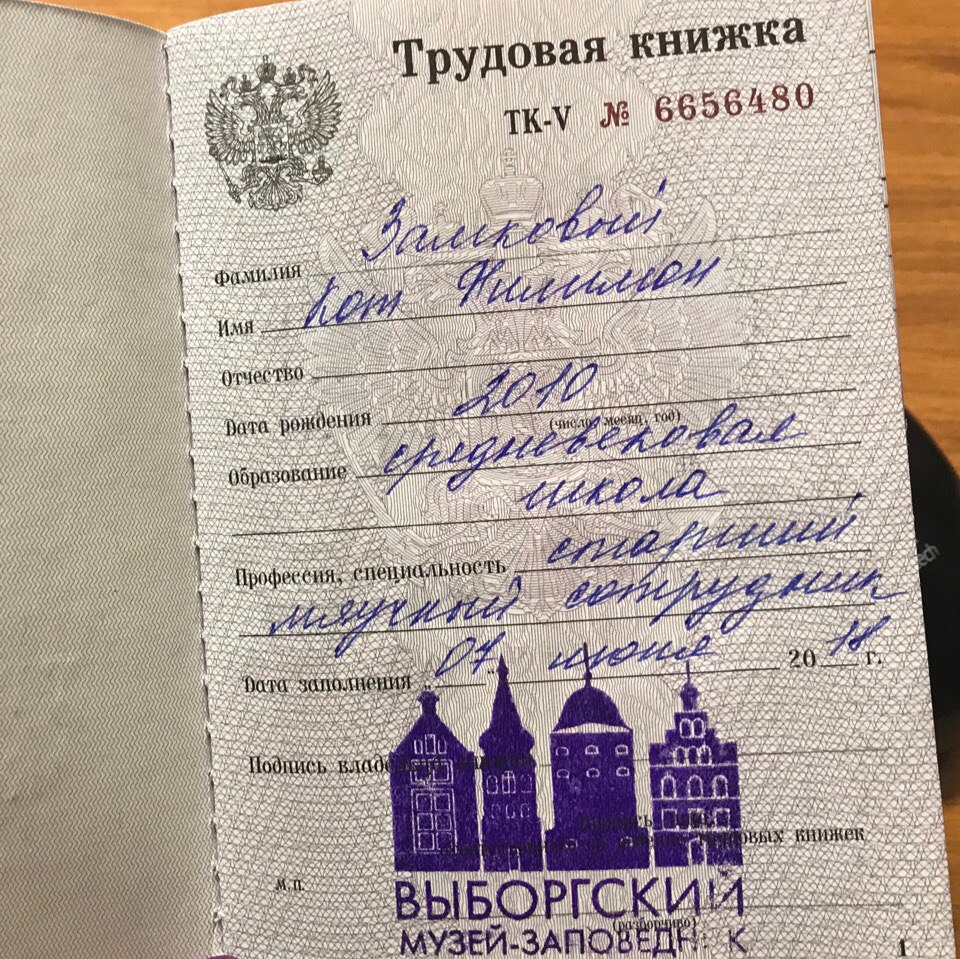 Трудовая книжка
ТК-V № 6656480
Замковый
Фамилия
Имя Кот Филимон
Отчество
Дата рождения 2010
(число, месяц, год)
Образование средневековая
школа
Профессия, специальность старший
мяучный сотрудник
Дата заполнения „07" июня 2018 г.
Подпись владельца
трудовых книжек
м.п.
ВЫБОРГСКИЙ
(разборчиво)
МУЗЕЙ-ЗАПОВЕДНИК
1